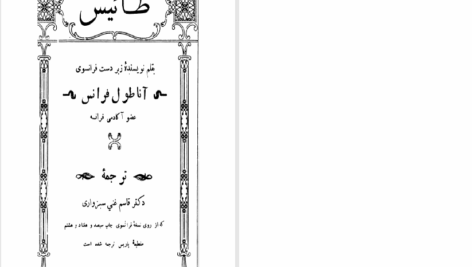 طائیس
بقلم نویسندهٔ زبر دست فرانسوی
آناطول فرانس
عضو آکادمی فرانسه
ترجمهٔ
دکتر قاسم غنی سبزواری
که از روی نسخهٔ فرانسوی چاپ سیصد و هفتاد و هشتم
مطبعهٔ پاریس ترجمه شده است